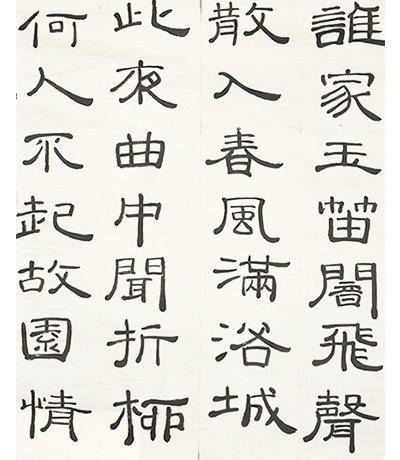 誰家玉笛闇飛聲
散入春風滿洛城
此夜曲中聞折柳
何人不起故園情